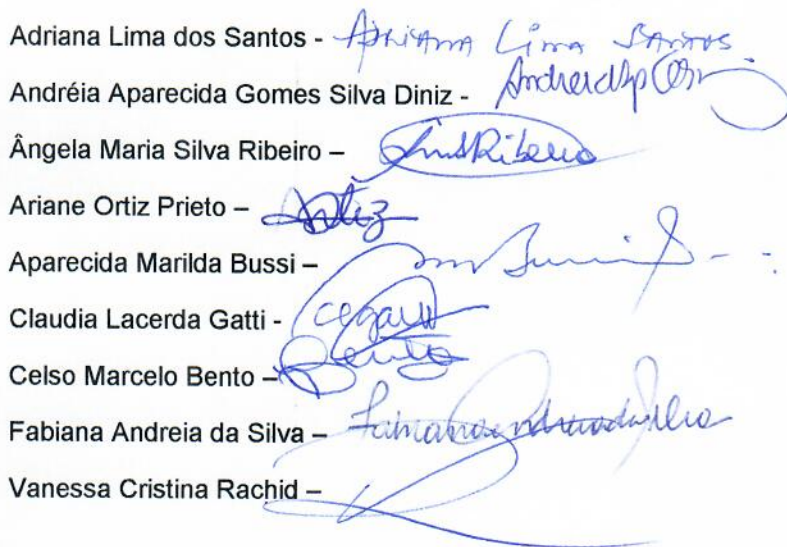 Adriana Lima dos Santos - Adriana Lima Santos
Andréia Aparecida Gomes Silva Diniz -
Ângela Maria Silva Ribeiro – Ribeiro
Ariane Ortiz Prieto – Ortiz
Aparecida Marilda Bussi –
Claudia Lacerda Gatti -
Celso Marcelo Bento – Bento
Fabiana Andreia da Silva – Fabiana Andreia da Silva
Vanessa Cristina Rachid –